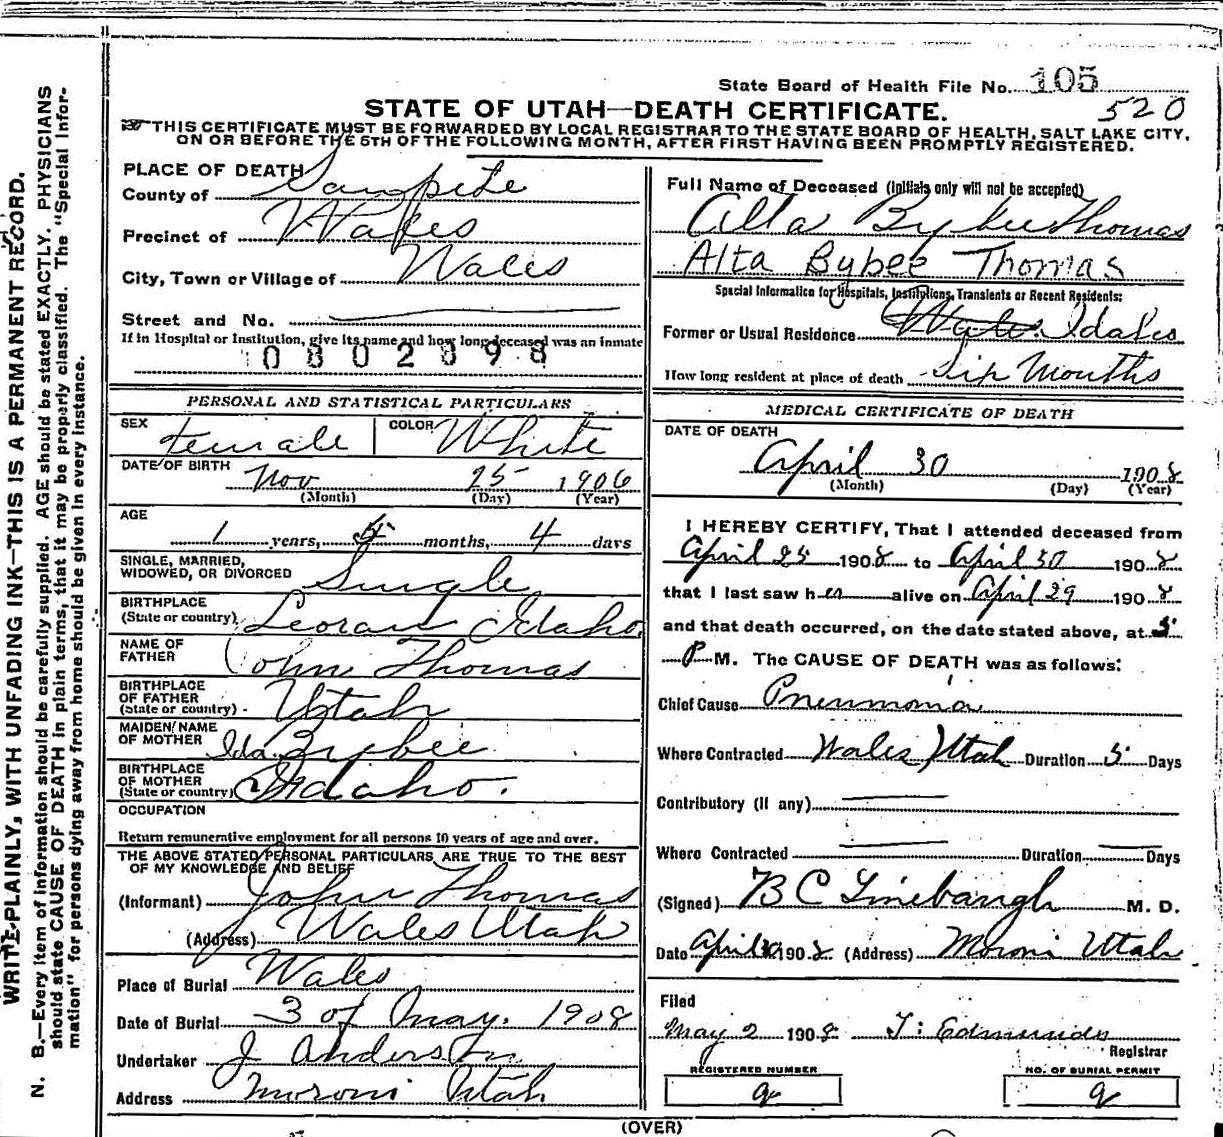 State Board of Health File No. 105
520
STATE OF UTAH—DEATH CERTIFICATE.
THIS CERTIFICATE MUST BE FORWARDED BY LOCAL REGISTRAR TO THE STATE BOARD OF HEALTH, SALT LAKE CITY,
ON OR BEFORE THE 5TH OF THE FOLLOWING MONTH, AFTER FIRST HAVING BEEN PROMPTLY REGISTERED.
PLACE OF DEATH
County of Sanpete
Precinct of Wales
City, Town or Village of Wales
Street and No.
If in Hospital or Institution, give its name and how long deceased was an inmate
0802898
PERSONAL AND STATISTICAL PARTICULARS
SEX female COLOR White
DATE OF BIRTH Nov 25 1906
(Month) (Day) (Year)
AGE
1 years, 5 months, 4 days
SINGLE, MARRIED,
WIDOWED, OR DIVORCED Single
BIRTHPLACE
(State or country) Idaho
NAME OF
FATHER John Thomas
BIRTHPLACE
OF FATHER
(State or country) Utah
MAIDEN NAME
OF MOTHER Ida Bybee
BIRTHPLACE
OF MOTHER
(State or country) Idaho.
OCCUPATION
Return remunerative employment for all persons 10 years of age and over.
THE ABOVE STATED PERSONAL PARTICULARS ARE TRUE TO THE BEST
OF MY KNOWLEDGE AND BELIEF
(Informant) John Thomas
(Address) Wales Utah
Place of Burial Wales
Date of Burial 3 of May. 1908
Undertaker J Anderson
Address Moroni Utah
Full Name of Deceased (Initials only will not be accepted)
Alta Bybee Thomas
Alta Bybee Thomas
Special Information for Hospitals, Institutions, Transients or Recent Residents:
Former or Usual Residence Wales Idaho
How long resident at place of death Six Months
MEDICAL CERTIFICATE OF DEATH
DATE OF DEATH
April 30 1908
(Month) (Day) (Year)
I HEREBY CERTIFY, That I attended deceased from
April 25 1908 to April 30 1908
that I last saw her alive on April 29 1908
and that death occurred, on the date stated above, at 5
P M. The CAUSE OF DEATH was as follows:
Chief Cause Pneumonia
Where Contracted Wales Utah Duration 5 Days
Contributory (If any)
Where Contracted Duration Days
(Signed) B C Linebaugh M. D.
Date April 30 1908 (Address) Moroni Utah
Filed
May 2 1908 T: Edmunds
Registrar
REGISTERED NUMBER NO. OF BURIAL PERMIT
9 9
(OVER)
WRITE PLAINLY, WITH UNFADING INK—THIS IS A PERMANENT RECORD.
N. B.—Every item of information should be carefully supplied. AGE should be stated EXACTLY. PHYSICIANS
should state CAUSE OF DEATH in plain terms, that it may be properly classified. The "Special Infor-
mation" for persons dying away from home should be given in every instance.